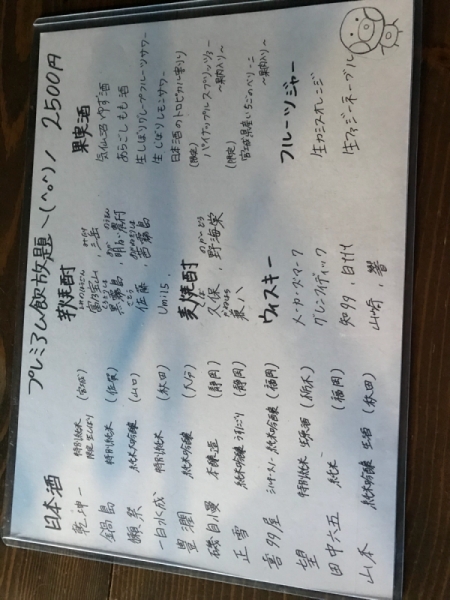 プレミアム飲放題 ＼(^o^)／ 2500円
日本酒
乾坤一 特別純米 限定生しぼり (宮城)
鍋島 特別純米 (佐賀)
獺祭 純米吟醸 (山口)
一白水成 特別純米 (秋田)
豊潤 純米吟醸 (大分)
磯自慢 本醸造 (静岡)
正雪 純米吟醸 うすにごり (静岡)
喜多屋 純米吟醸 (福岡)
望 特別純米 生原酒 (栃木)
田中六五 純米 (福岡)
山本 純米吟醸 生酒 (秋田)
芋焼酎
富乃宝山 , 三岳
黒霧島 , 明るい農村
佐藤 , 茜霧島
Umils ,
麦焼酎
久保 , 野海棠
兼八
ウィスキー
メーカーズマーク
グレンフィディック
知多 , 白州
山崎 , 響
果実酒
気仙沼ゆず酒
あらごしもも酒
生しぼりグレープフルーツサワー
生しぼりレモンサワー
日本酒のトロピカル割り
(特定)
パイナップルスプリッツァー
〜果肉入り〜
(特定)
宮城県産いちごのベリーニ
〜果肉入り〜
フルーツジャー
生カシスオレンジ
生ファジーネーブル